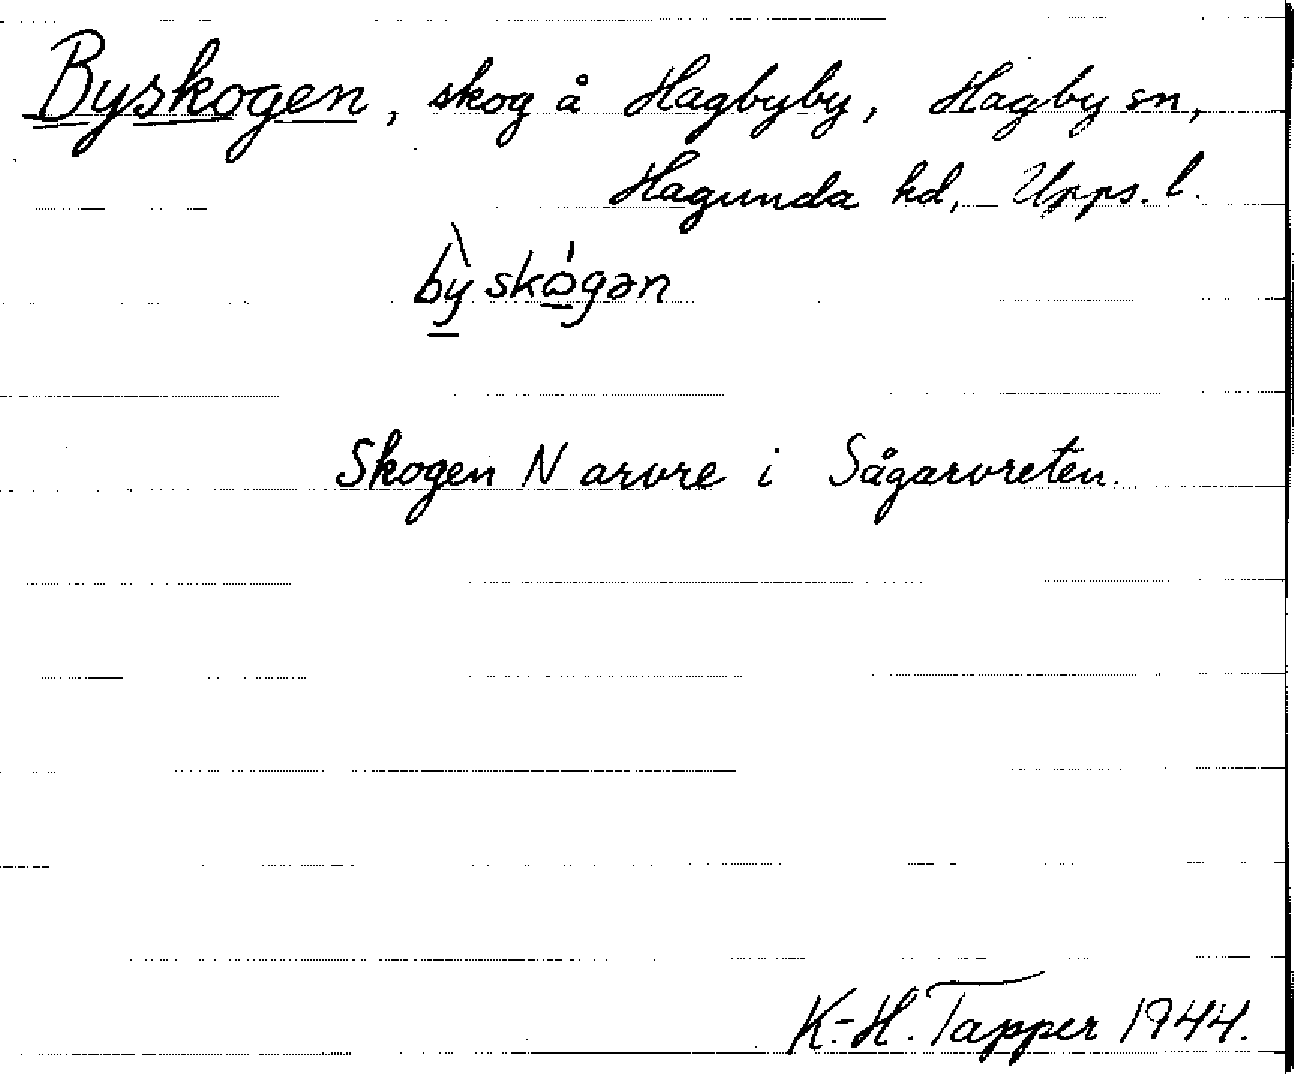 Byskogen, skog å Hagbyby, Hagby sn,
Hagunda hd, Upps. l.
bỳskógən
Skogen N arvre i Sågarvreten.
K-H. Tapper 1944.